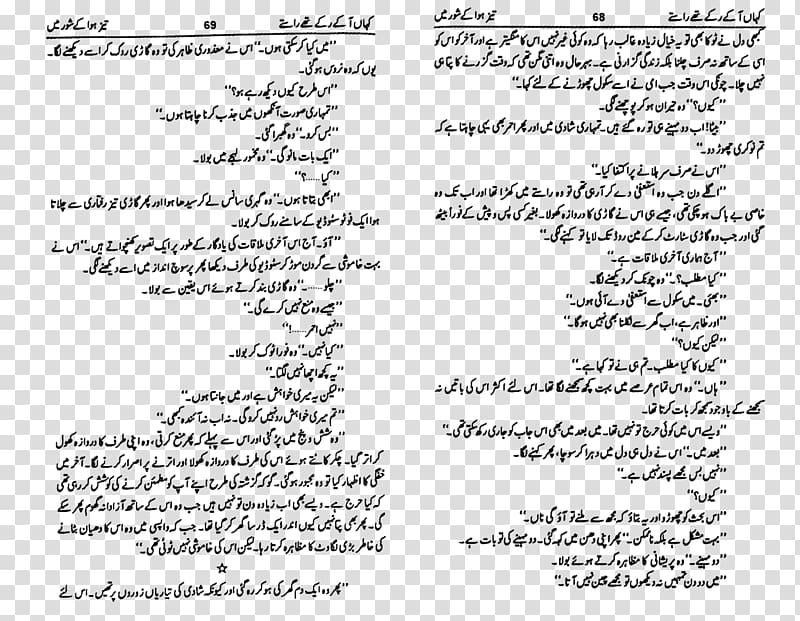 کہاں آ کے رکے تھے راستے 68 تیز ہوا کے شور میں
کبھی دل نے ٹوکا بھی تو یہ خیال زیادہ غالب رہا کہ وہ کوئی غیر نہیں اس کا منگیتر ہے اور آخر کو اس کو
اسی کے ساتھ نہ صرف چلنا بلکہ زندگی گزارنی ہے۔ بہرحال وہ اتنی مگن تھی کہ وقت گزرنے کا پتا ہی
نہیں چلا۔ چونکی اس وقت جب امی نے اسے سکول چھوڑنے کے لئے کہا۔“
”کیوں؟“ وہ حیران ہو کر پوچھنے لگی۔
”بیٹا! اب دو مہینے ہی تو رہ گئے ہیں۔ تمہاری شادی میں اور پھر احمر بھی یہی چاہتا ہے کہ
تم نوکری چھوڑ دو۔“
”اس نے صرف سر ہلانے پر اکتفا کیا۔“
”اگلے دن جب وہ استعفیٰ دے کر آ رہی تھی تو وہ راستے میں کھڑا تھا اور اب تک وہ
خاصی بے باک ہو چکی تھی، جیسے ہی اس نے گاڑی کا دروازہ کھولا۔ بغیر کسی پس و پیش کے فوراً بیٹھ
گئی اور جب وہ گاڑی سٹارٹ کر کے مین روڈ تک لایا تو کہنے لگی۔“
”آج ہماری آخری ملاقات ہے۔“
”کیا مطلب؟۔“ وہ چونک کر دیکھنے لگا۔
”بھئی۔ میں سکول سے استعفیٰ دے آئی ہوں۔“
”اور ظاہر ہے، اب گھر سے نکلنا بھی نہیں ہو گا۔“
”لیکن کیوں؟“
”کیوں کا کیا مطلب۔ تم ہی نے تو کہا ہے۔“
”ہاں۔“ وہ اس تمام عرصے میں بہت کچھ سمجھنے لگا تھا۔ اس لئے اکثر اس کی باتیں نہ
سمجھنے کے باوجود سمجھ کر بات کرتا تھا۔
”ویسے اس میں کوئی حرج تو نہیں تھا۔ میں بعد میں بھی اس جاب کو جاری رکھ سکتی تھی۔“
”بعد میں۔“ اس نے دل ہی دل میں دہرا کر سوچا، پھر کہنے لگا۔
”نہیں بس مجھے پسند نہیں ہے۔“
”کیوں؟“
”اس بحث کو چھوڑو اور یہ بتاؤ کہ مجھ سے ملنے تو آؤ گی ناں۔“
”بہت مشکل ہے بلکہ ناممکن۔“ پھر اپنی دھن میں کہہ گئی۔ دو مہینے کی تو بات ہے۔
”دو مہینے۔“ وہ پریشانی کا مظاہرہ کرتے ہوئے بولا۔
”میں دو دن تمہیں نہ دیکھوں تو مجھے چین نہیں آتا۔“
کہاں آ کے رکے تھے راستے 69 تیز ہوا کے شور میں
”میں کیا کر سکتی ہوں۔“ اس نے معذوری ظاہر کی تو وہ گاڑی روک کر اسے دیکھنے لگا۔
یوں کہ وہ نروس ہو گئی۔
”اس طرح کیوں دیکھ رہے ہو؟“
”تمہاری صورت آنکھوں میں جذب کرنا چاہتا ہوں۔“
”بس کرو۔“ وہ گھبرا گئی۔
”ایک بات مانو گی۔“ وہ مخمور لہجے میں بولا۔
”کیا......؟“
”ابھی بتاتا ہوں۔“ وہ گہری سانس لے کر سیدھا ہوا اور پھر گاڑی تیز رفتاری سے چلاتا
ہوا ایک فوٹو سٹوڈیو کے سامنے روک کر بولا۔
”آؤ۔ آج اس آخری ملاقات کی یادگار کے طور پر ایک تصویر کھنچواتے ہیں۔“ اس نے
بہت خاموشی سے گردن موڑ کر سٹوڈیو کی طرف دیکھا پھر پرسوچ انداز میں اسے دیکھنے لگی۔
”چلو......۔“ وہ گاڑی بند کرتے ہوئے اس یقین سے بولا۔
”جیسے وہ منع نہیں کرے گی۔“
”نہیں احمر......!“
”کیا نہیں۔“ وہ فوراً ٹوک کر بولا۔
”یہ کچھ اچھا نہیں لگتا۔“
”لیکن یہ میری خواہش ہے اور میں جانتا ہوں۔“
”تم میری خواہش رد نہیں کرو گی۔ نہ اب نہ آئندہ کبھی۔“
”وہ شش و پنج میں پڑ گئی اور اس سے پہلے کہ پھر منع کرتی، وہ اپنی طرف کا دروازہ کھول
کر اتر گیا۔ چکر کاٹتے ہوئے اس کی طرف کا دروازہ کھولا اور اترنے پر اصرار کرنے لگا۔ آخر میں
خفگی کا اظہار کیا تو وہ مجبور ہو گئی۔ گو کہ گزشتہ کی طرح اپنے آپ کو مطمئن کرنے کی کوشش کر رہی تھی
کہ کیا حرج ہے۔ ویسے بھی اب زیادہ دن تو نہیں ہیں جب وہ اس کے ساتھ آزادانہ گھوم پھر سکے
گی۔ پھر بھی پتا نہیں کیوں اندر ایک ڈر سا گھر کر گیا تھا۔ جب کہ واپسی میں وہ اس کا دھیان بٹانے
کی خاطر بڑی لگاوٹ کا مظاہرہ کرتا رہا۔ لیکن اس کی خاموشی نہیں ٹوٹی تھی۔“
☆
”پھر وہ ایک دم گھر کی ہو کر رہ گئی اور کیونکہ شادی کی تیاریاں زوروں پر تھیں۔ اس لئے